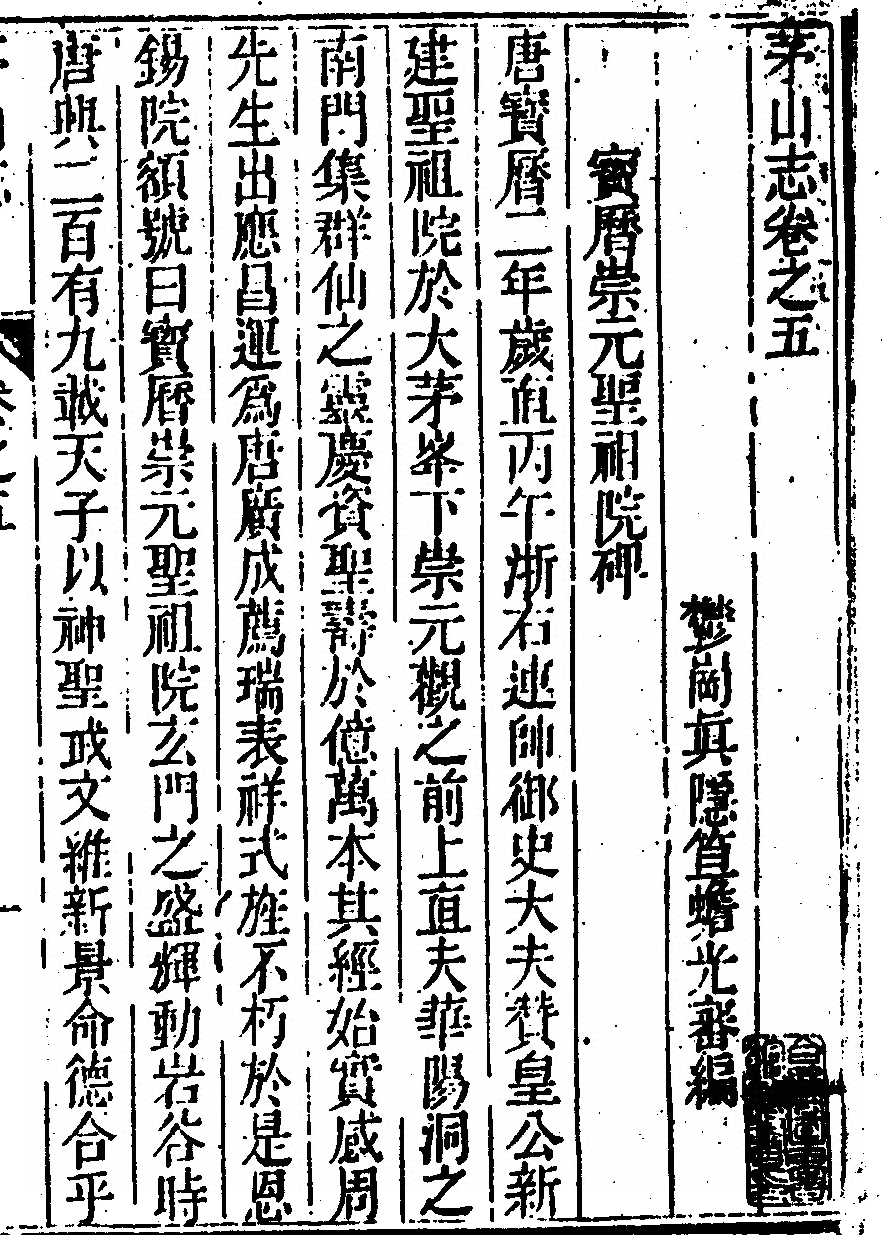 茅山志卷之五
鬱崗眞隱笪蟾光審編
寶曆崇元聖祖院碑
唐寶曆二年歲直丙午浙右連帥御史大夫贊皇公新
建聖祖院於大茅峯下崇元觀之前上直夫華陽洞之
南門集群仙之靈慶資聖壽於億萬本其經始實感周
先生出應昌運爲唐廣成薦瑞表祥式旌不朽於是恩
錫院額號曰寶曆崇元聖祖院玄門之盛輝動岩谷時
唐興二百有九載天子以神聖武文維新景命德合乎
卷之五
一